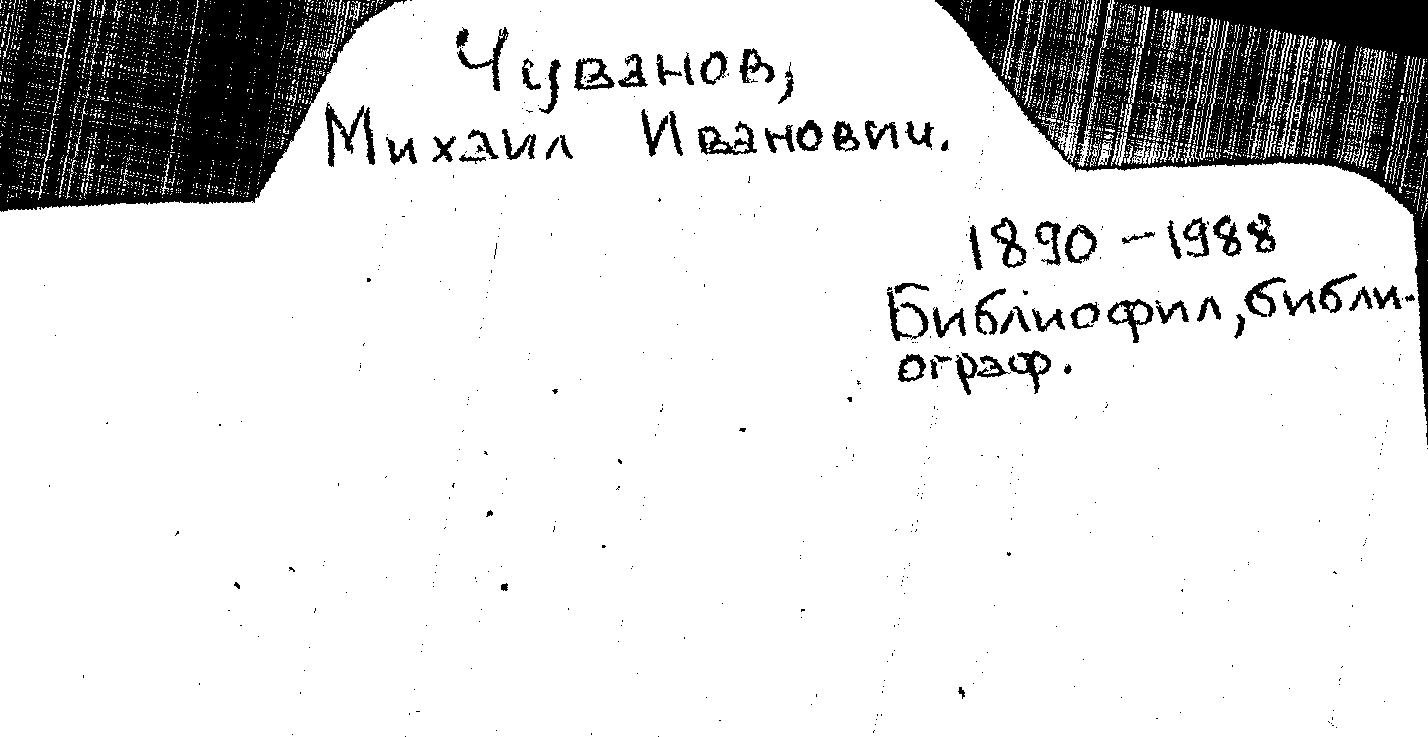 Чуванов,
Михаил Иванович.
1890 – 1988
Библиофил, библи-
ограф.